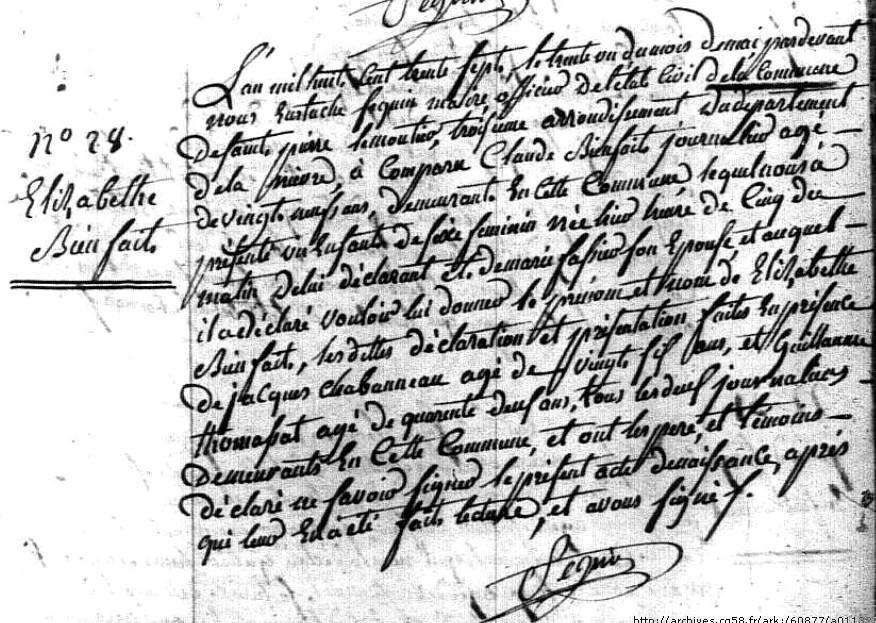 Seguin
L'an mil huit cent trente sept, le trente un du mois de mai pardevant
nous Eustache Seguin maire officier de l'état civil de la Commune
de Saint pierre lemoutier, troisieme arrondissement du département
de la nievre, à comparu Claude Bienfait journalier agé
de vingt neuf ans, demeurant En Cette Commune lequel nous à
présenté un Enfant de sixe feminin née hier heure de Cinq du
matin de lui déclarant et de marie son Epouse, et auquel
il a déclaré vouloir lui donner le prénom et nom de Elizabethe
Bienfait, les dittes déclaration et présentation faites En présence
De jacques Chabanneau agé de vingt six ans, et Guillaume
thomassat agé de quarente deux ans, tous les deux journaliers
Demeurants En Cette Commune, et ont les pere, et témoins
déclaré ne savoir signer le présent acte de naissance, après
qui leur En à été fait lecture, et avons signé /.
Seguin
N° 28.
Elizabethe
Bienfait
http://archives.cg58.fr/ark:/60877/a0113